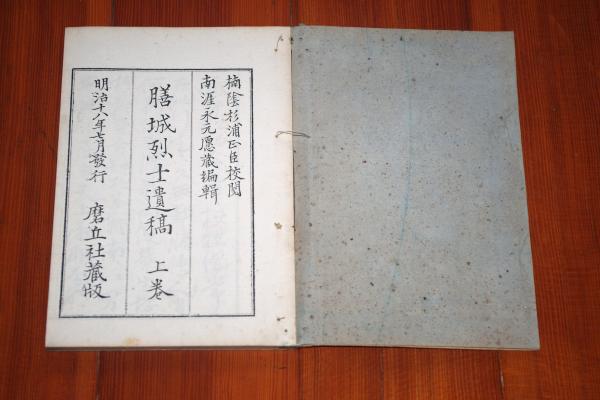 楠陰杉浦正臣校閲
南涯永元愿蔵編輯
膳城烈士遺稿 上巻
明治十八年七月發行 磨並社藏版